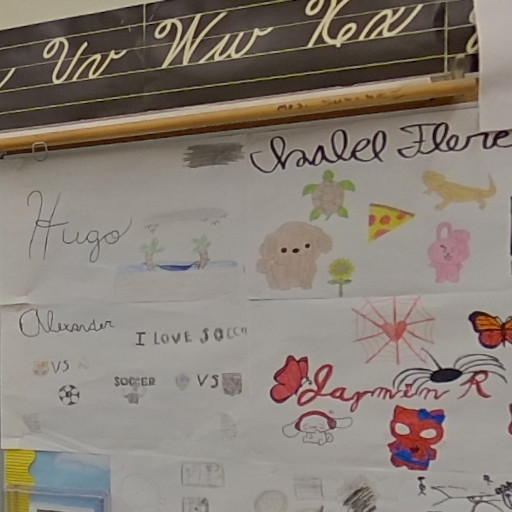 Uv Ww Xx
Isabel Flore
Hugo
Alexander
I LOVE SOCC
VS
SOCCER
VS
Jazmin R